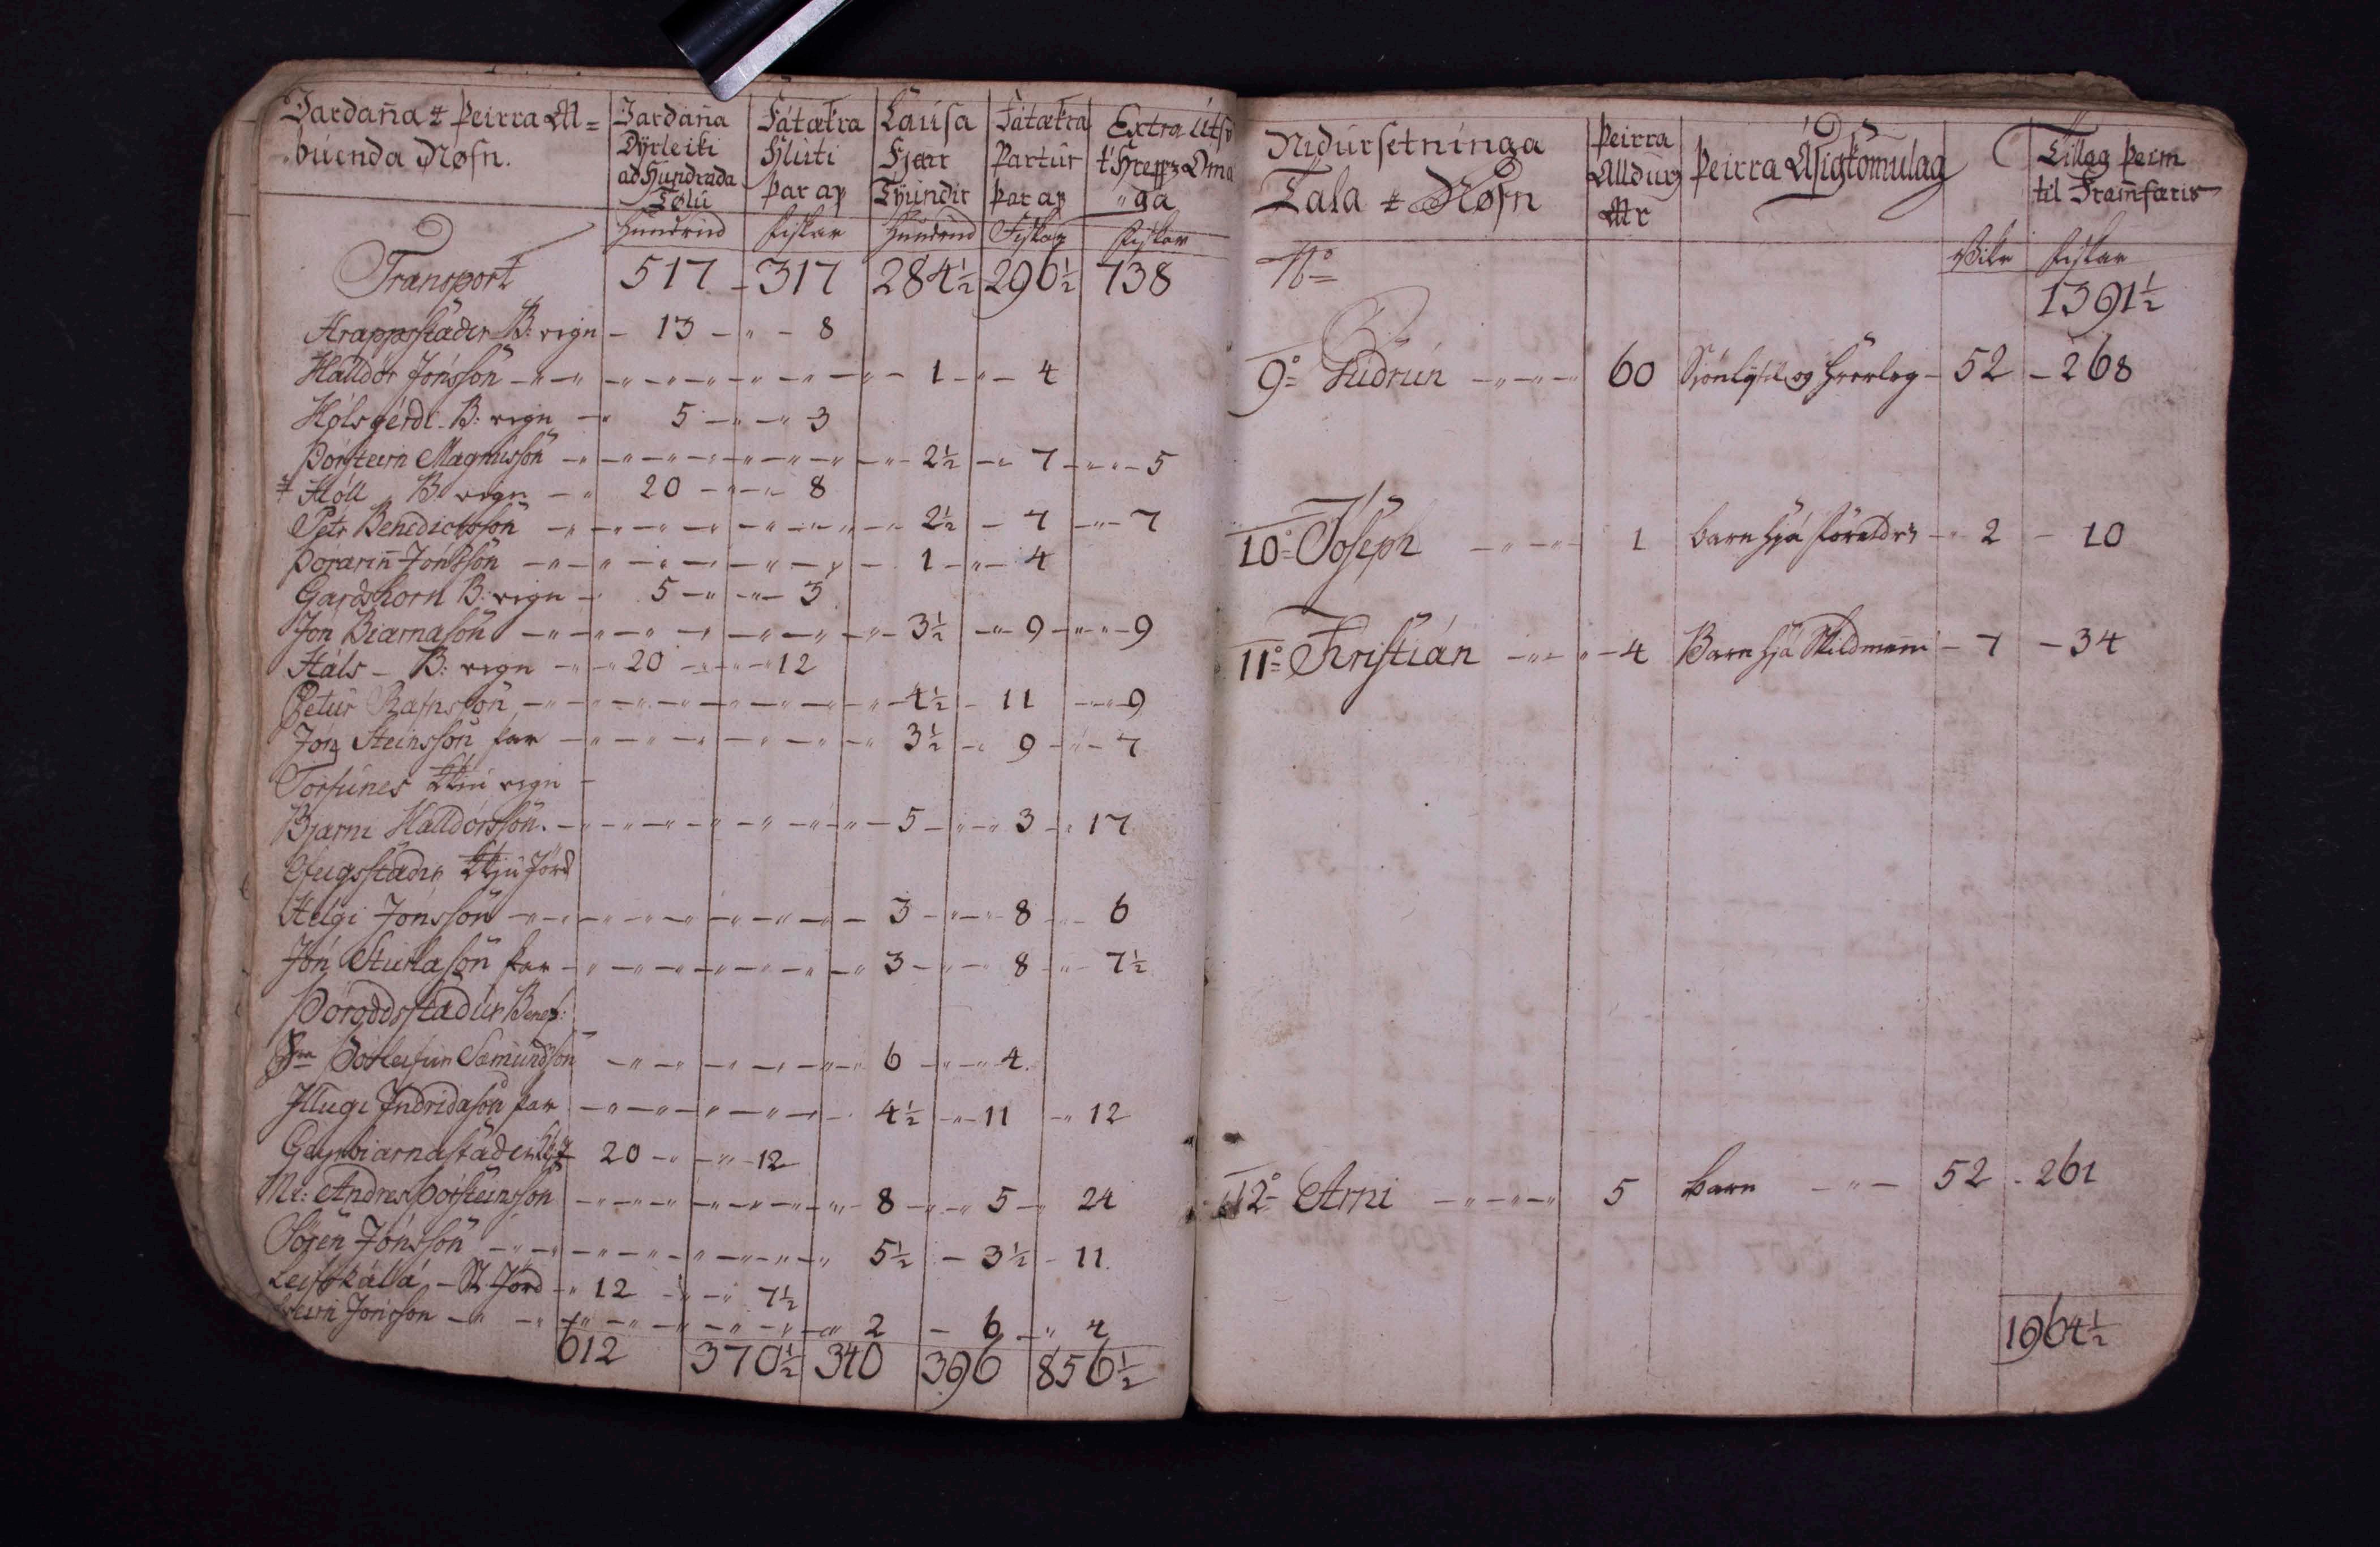 Jardaña & þeirra Á=
búenda Nøfn.
Jardaña
Dyrleiki
ad Hundrada
Tølu
Fátækra
Hluti
þar af
Lausa
Fjár
Tyundir
Fátækra
Partur
þar af
Extra útsv
t' Hrepps Óma
"ga
Hundrud Fiskar Hundrud Fiskar Fiskar
Transport 517 - 317 284½ 296½ 738
Hrappsstader B: eign - 13 - " - 8
Halldór Jónsson 1 - " - 4
Hólsgérdi B: eign 5 - " - " 3
Þorsteirn Magnusson 2½ - 7 - " - 5
Hóll B: eign 20 - " - 8
Petr Benedictsson 2½ - 7 - " - 7
Þorarin̄ Jónsson 1 - " - 4
Gardshorn B: eign 5 - " - " - 3
Jón Biarnason 3½ - " 9 - " - 9
Háls - B: eign 20 - " - 12
Petur Rafnsson 4½ - 11 - " - 9
Jon Steinsson þar 3½ - 9 - " - 7
Torfunes eign -
Bjarni Halldórsson 5 - " - 3 - 17
Ofeigsstadir Jörd
Helgi Jónsson 3 - " - 8 - 6
Jón Sturlason þar 3 - " - 8 - 7½
Þóroddsstadur Benef:
Þorleifur Sæmundsson 6 - " - 4
Illugi Indridason þar 4½ - " - 11 - " 12
Geirbiarnastader 20 - " - " - 12
Mr: Andres Þorsteinsson 8 - " - 5 - " 24
Sören Jónsson 5½ - 3½ - 11
Leifskállá - St. Jörd - " 12 - " 7½
Jónsson 2 - 6 - " 4
612 370½ 340 396 856½
Nidursetninga
Tala & Nøfn
Þeirra
Alldur
Ár
Þeirra Ásigkomulag
Tillag þeim
til Framfæris
No
Vikr Fiskar
1391½
9o= Gudrún - " - " - 60 Sjónlysil og hrorleg - 52 - 268
10o= Joseph - " - 1 barn hjá foreldr - " 2 - 10
11o= Kristián - " - 4 Barn hjá Skildmenni - 7 - 34
12o= Arni - " - " - 5 barn - " - 52 - 261
1964½